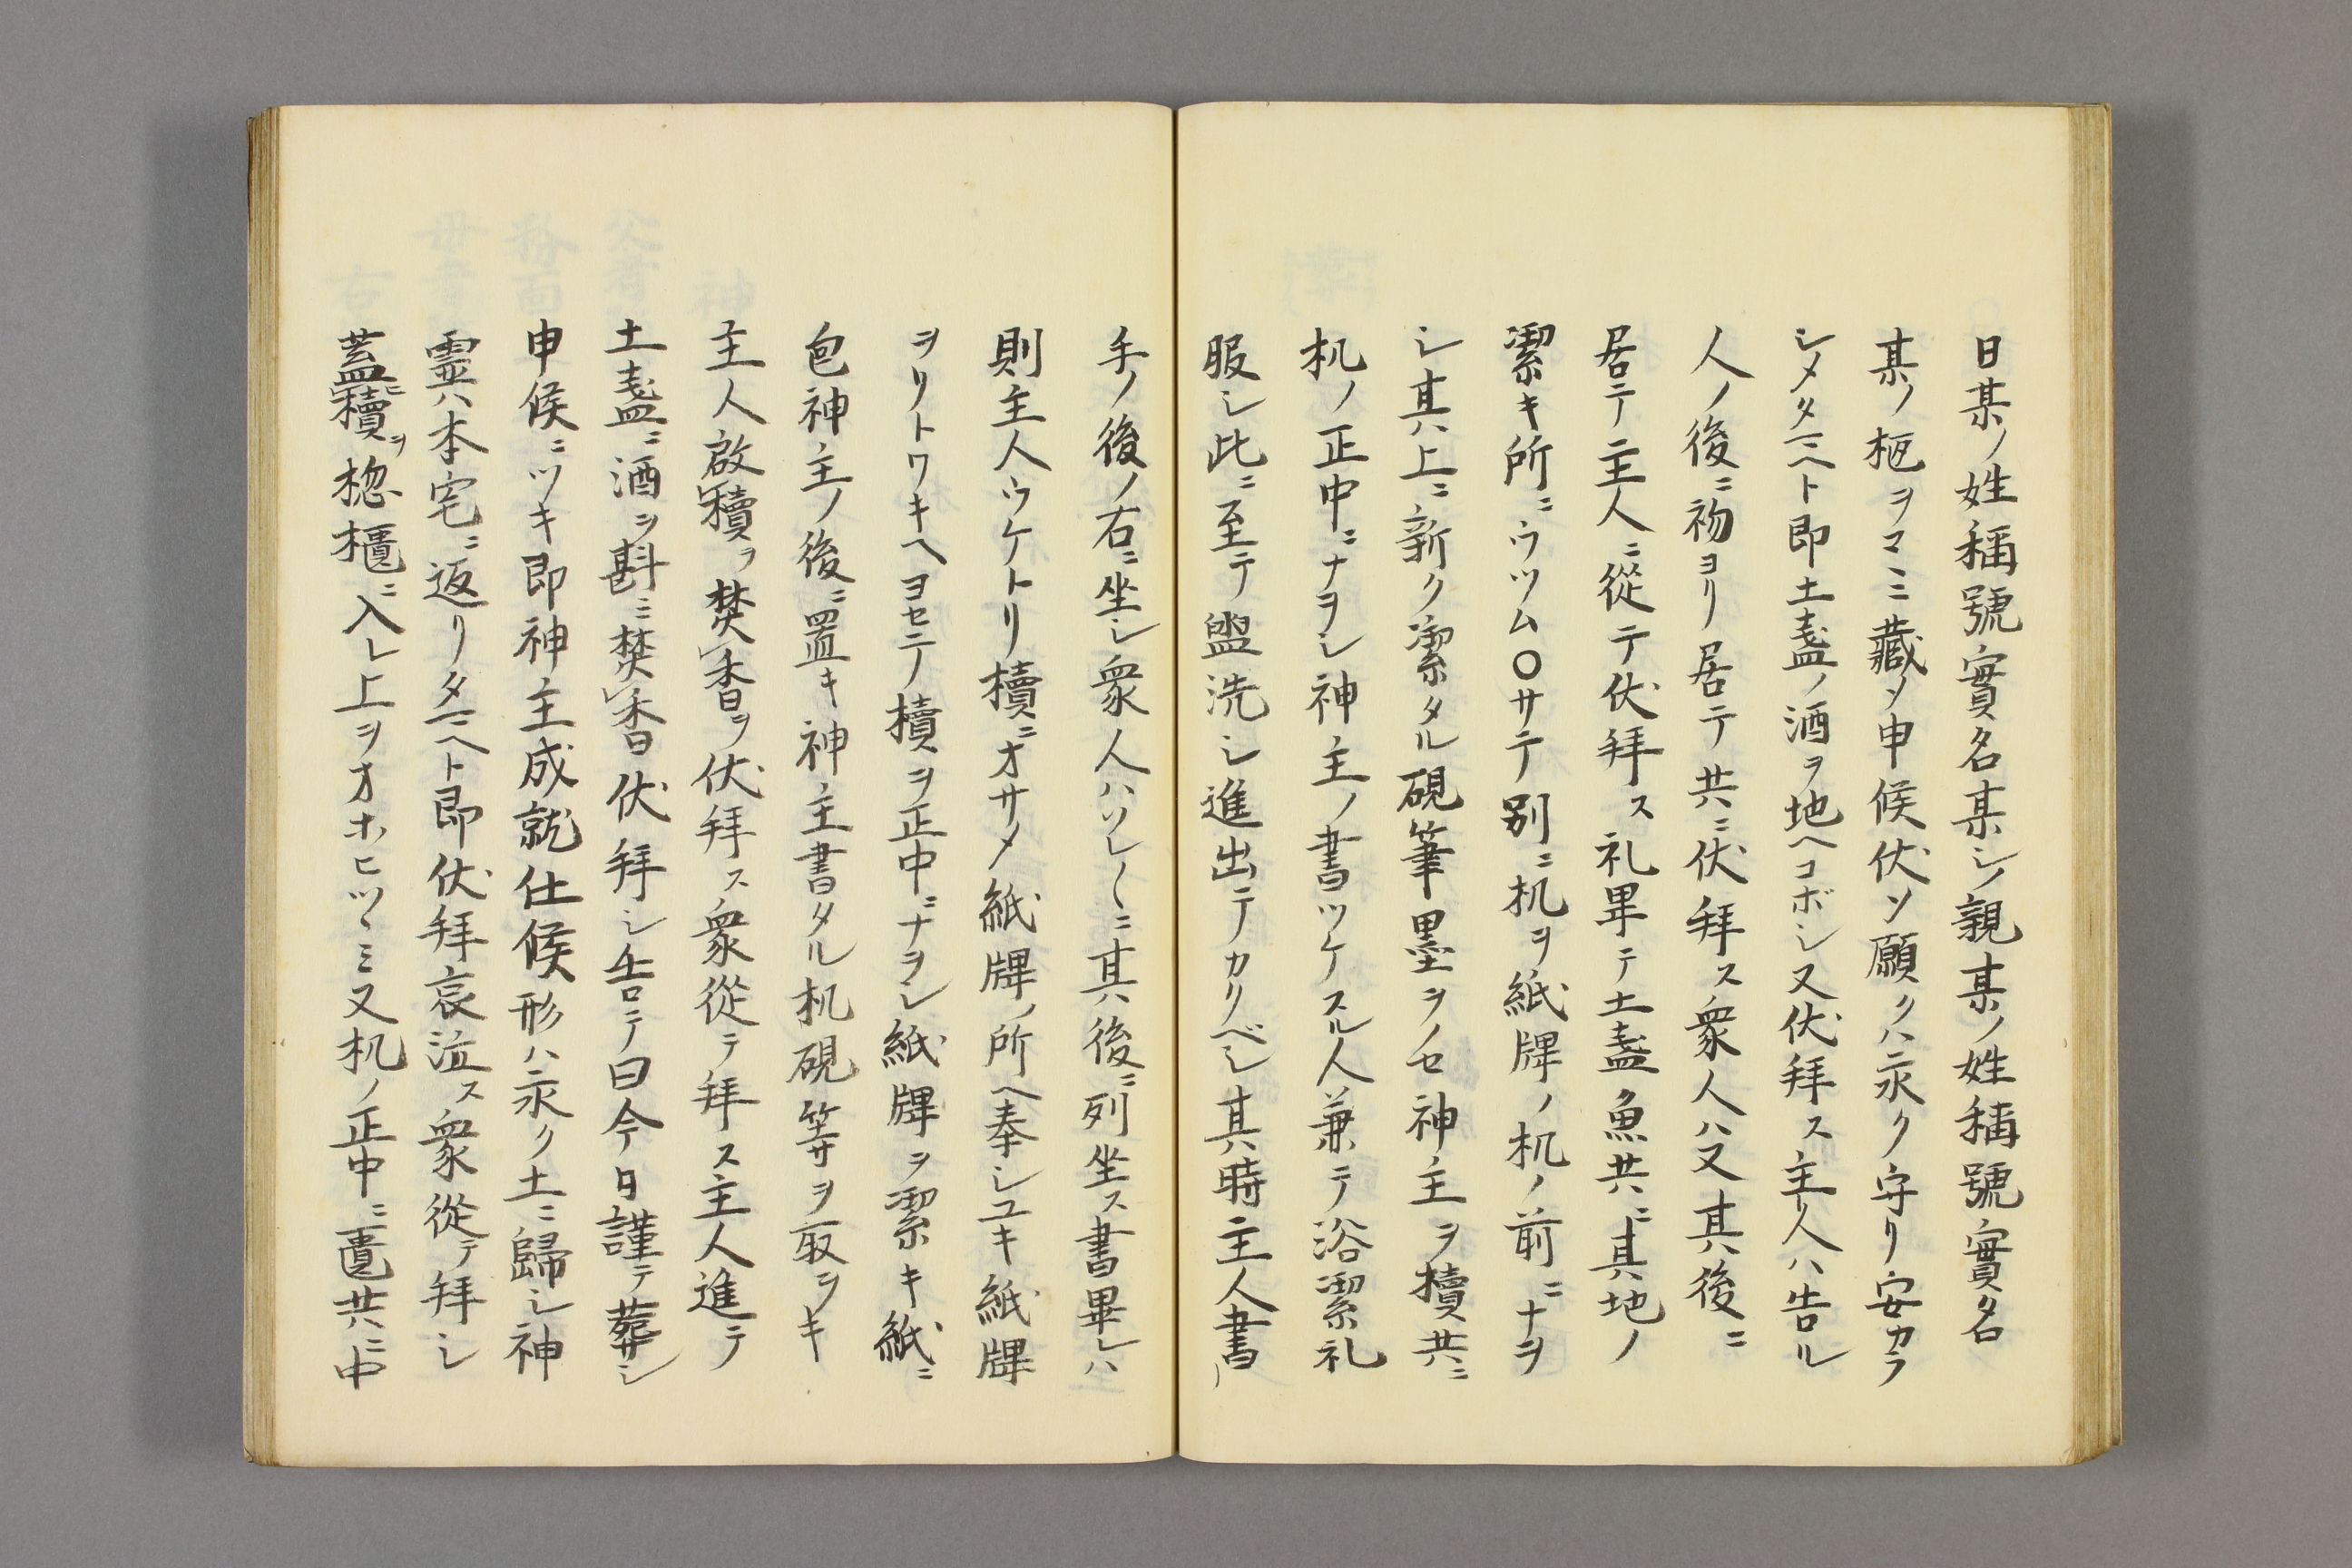 日某ノ姓稱號實名某シ親某ノ姓稱號實名
某ノ柩ヲマミニ藏メ申候伏ソ願クハ永ク守リ安カラ
シメタマヘト即土盞ノ酒ヲ地ヘコボシ又伏拜ス主人ハ告ル
人ノ後ニ初ヨリ居テ共ニ伏拜ス衆人ハ又其後ニ
居テ主人ニ從テ伏拜ス礼畢テ土盞魚共ニ其地ノ
潔キ所ニウツム〇サテ別ニ机ヲ紙牌ノ机ノ前ニナヲ
シ其上ニ新ク潔タル硯筆墨ヲノセ神主ヲ櫝共ニ
机ノ正中ニナヲシ神主ノ書ツケスル人兼テ浴潔礼
服シ此ニ至テ盥洗シ進出テカクベシ其時主人書
手ノ後ノ右ニ坐シ衆人ハソレ〱ニ其後ニ列坐ス書畢レハ
則主人ウケトリ櫝ニオサメ紙牌ノ所ヘ奉シユキ紙牌
ヲリトワキヘヨセテノ櫝ヲ正中ニナヲシ紙牌ヲ潔キ紙ニ
包神主ノ後ニ置キ神主書タル机硯等ヲ取ヲキ
主人啟櫝ヲ焚香ヲ伏拜ス衆從テ拜ス主人進テ
土盞ニ酒ヲ斟ミ焚香伏拜シ告テ曰今日謹テ葬シ
申候ニツキ即神主成就仕候形ハ永ク土ニ歸シ神
靈ハ本宅ニ返リタマヘト即伏拜哀泣ス衆從テ拜シ
蓋櫝ヲ棇櫃ニ入レ上ヲオホヒツヽミ又机ノ正中ニ置共ニ中